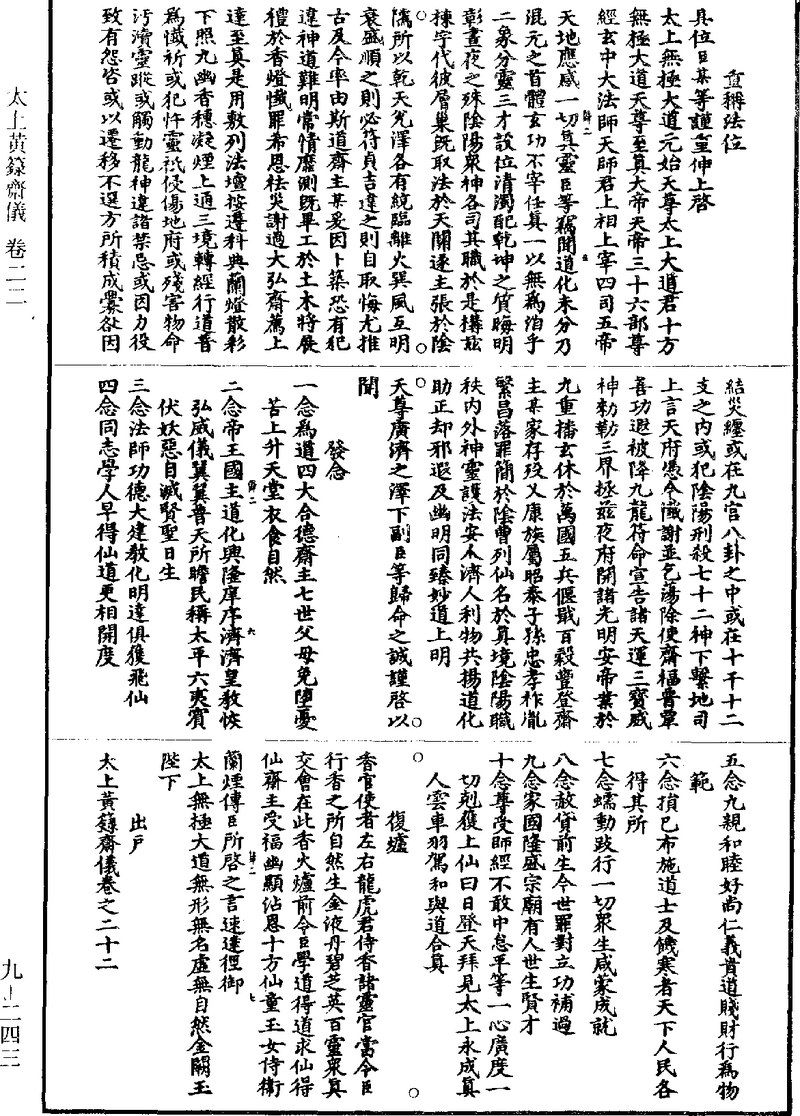 宣稱法位
具位臣某等謹重伸上啓
太上無極大道元始天尊太上大道君十方
無極大道天尊至真大帝天帝三十六部尊
經玄中大法師天師君上相上宰四司五帝
天地應感一切真靈臣等竊聞道化未分乃
混元之首體玄功不宰任真一以無為洎乎
二象分靈三才設位清濁配乾坤之質晦明
彰晝夜之殊陰陽衆神各司其職於是構茲
棟宇代彼層巢既取法於天關遂主張於陰
隲所以乾天兌澤各有統臨離火巽風互明
衰盛順之則必符貞吉違之則自取悔尤推
古及今率由斯道齋主某爰因卜築恐有犯
違神道難明常情靡測既畢工於土木將展
禮於香燈懺罪希恩祛災謝過大弘齋薦上
達至真是用敷列法壇按遵科典蘭燈散彩
下照九幽香穗凝煙上通三境轉經行道普
為懺祈或犯忤靈祇侵傷地府或殘害物命
汙瀆靈蹤或觸動龍神違諸禁忌或因力役
致有怨咎或以遷移不選方所積成釁咎因
結災纏或在九宮八卦之中或在十干十二
支之內或犯陰陽刑殺七十二神下繫地司
上言天府憑今懺謝並乞蕩除使齋福普覃
善功遐被降九龍符命宣告諸天運三寶威
神勑勒三界拯茲夜府開諸光明安帝業於
九重播玄休於萬國五兵偃戢百穀豐登齋
主某家存歿乂康族屬昭泰子孫忠孝祚胤
繁昌落罪簡於陰曹列仙名於真境陰陽職
秩內外神靈護法安人濟人利物共揚道化
助正却邪遐及幽明同臻妙道上明
天尊廣濟之澤下副臣等歸命之誠謹啓以
聞
發念
一念為道四大合德齋主七世父母免墮憂
苦上升天堂衣食自然
二念帝王國主道化興隆庠序濟濟皇教恢
弘威儀翼翼普天所瞻民稱太平六夷賓
伏妖惡自滅賢聖日生
三念法師功德大建教化明達俱獲飛仙
四念同志學人早得仙道更相開度
五念九親和睦好尚仁義貴道賤財行為物
範
六念損己布施道士及饑寒者天下人民各
得其所
七念蠕動跂行一切衆生咸蒙成就
八念赦貸前生今世罪對立功補過
九念家國隆盛宗廟有人世生賢才
十念尊受師經不敢中怠平等一心廣度一
切剋獲上仙白日登天拜見太上永成真
人雲車羽駕和與道合真
復爐
香官使者左右龍虎君侍香諸靈官當令臣
行香之所自然生金液丹碧芝英百靈衆真
交會在此香火爐前令臣學道得道求仙得
仙齋主受福幽顯沾恩十方仙童玉女侍衛
蘭煙傳臣所啓之言速達徑御
太上無極大道無形無名虛無自然金闕玉
陛下
出戶
太上黃籙齋儀卷之二十二
太上黃籙齋儀 卷二二
九—二四三